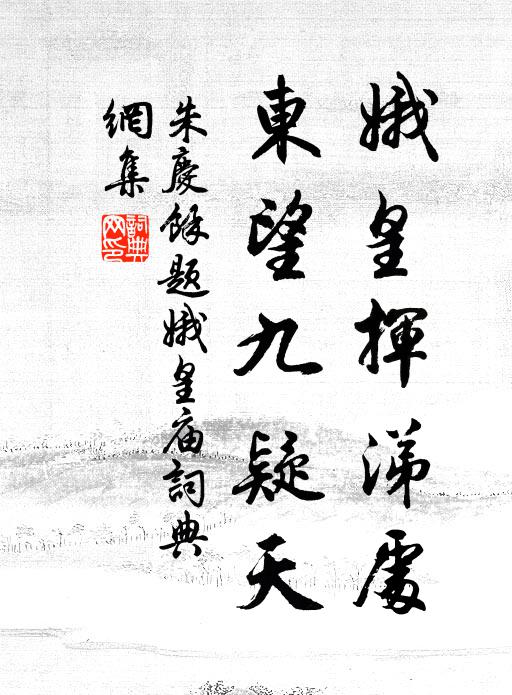 娥皇揮涕處
東望九疑天
朱慶餘題娥皇庙詞典
網集
詞典
网印